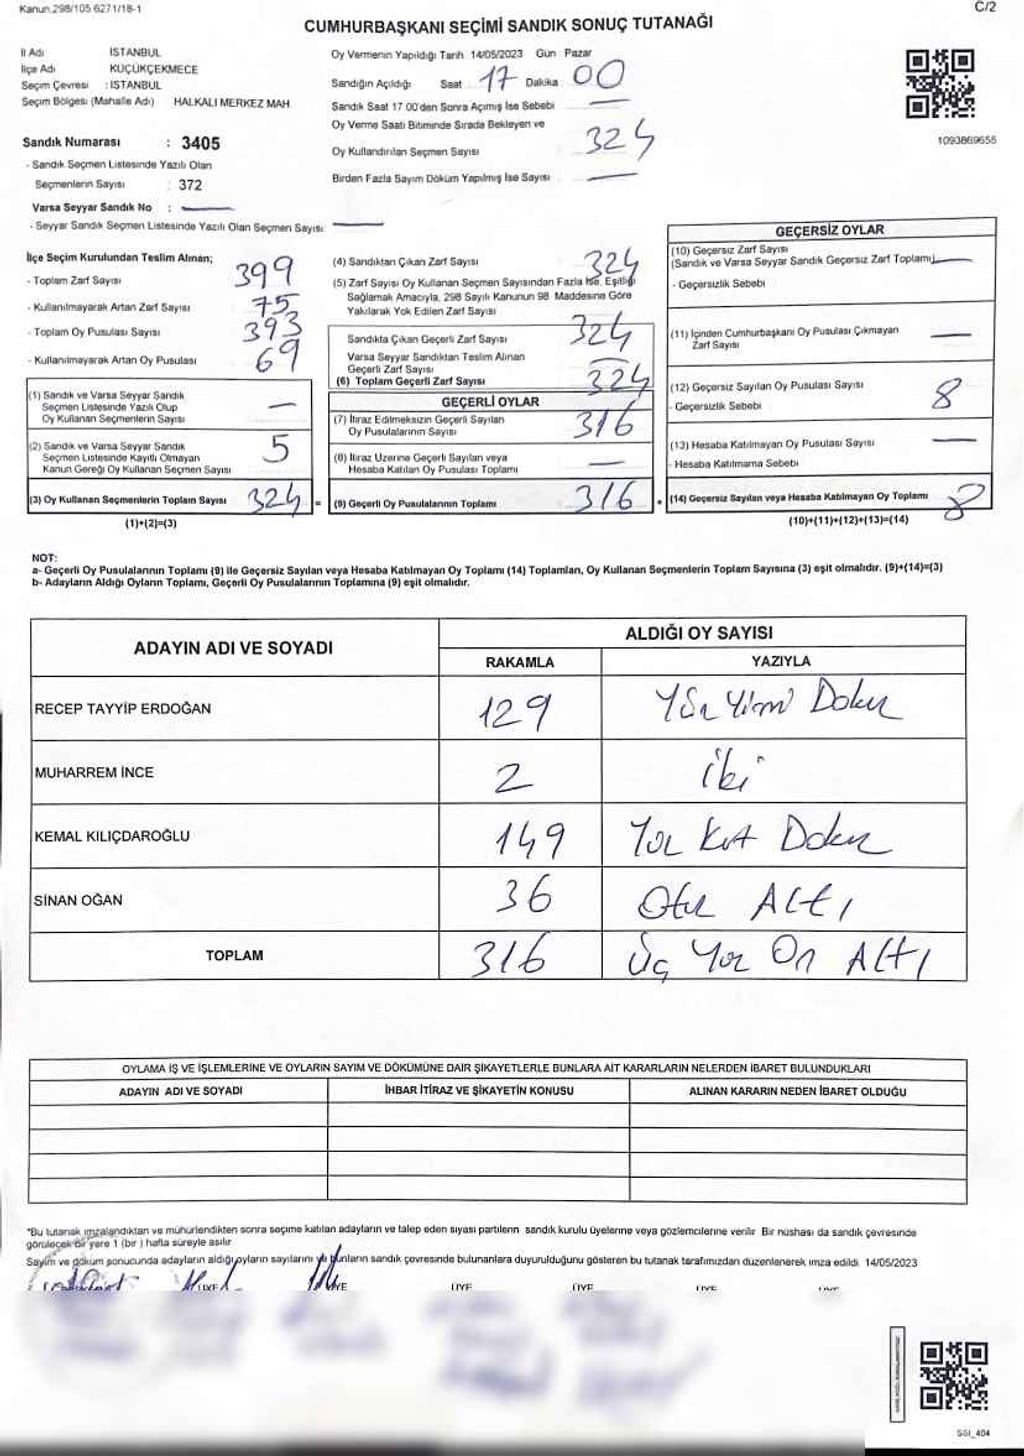 Kanun.298/105 6271/18-1
C/2
CUMHURBAŞKANI SEÇİMİ SANDIK SONUÇ TUTANAĞI
İl Adı İSTANBUL
İlçe Adı KÜÇÜKÇEKMECE
Seçim Çevresi : İSTANBUL
Seçim Bölgesi (Mahalle Adı) HALKALI MERKEZ MAH.
Sandık Numarası : 3405
- Sandık Seçmen Listesinde Yazılı Olan
Seçmenlerin Sayısı : 372
Varsa Seyyar Sandık No : —
- Seyyar Sandık Seçmen Listesinde Yazılı Olan Seçmen Sayısı: —
Oy Vermenin Yapıldığı Tarih 14/05/2023 Gün Pazar
Sandığın Açıldığı Saat 17 Dakika 00
Sandık Saat 17 00'den Sonra Açımış İse Sebebi —
Oy Verme Saati Bitiminde Sırada Bekleyen ve
Oy Kullandırılan Seçmen Sayısı 324
Birden Fazla Sayım Döküm Yapılmış İse Sayısı —
1093869655
İlçe Seçim Kurulundan Teslim Alınan;
- Toplam Zarf Sayısı 399
- Kullanılmayarak Artan Zarf Sayısı 75
- Toplam Oy Pusulası Sayısı 393
- Kullanılmayarak Artan Oy Pusulası 69
(1) Sandık ve Varsa Seyyar Sandık
Seçmen Listesinde Yazılı Olup
Oy Kullanan Seçmenlerin Sayısı —
(2) Sandık ve Varsa Seyyar Sandık
Seçmen Listesinde Kayıtlı Olmayan
Kanun Gereği Oy Kullanan Seçmen Sayısı 5
(3) Oy Kullanan Seçmenlerin Toplam Sayısı 324 =
(1)+(2)=(3)
(4) Sandıktan Çıkan Zarf Sayısı 324
(5) Zarf Sayısı Oy Kullanan Seçmen Sayısından Fazla İse, Eşitliği
Sağlamak Amacıyla, 298 Sayılı Kanunun 98 Maddesine Göre
Yakılarak Yok Edilen Zarf Sayısı
Sandıkta Çıkan Geçerli Zarf Sayısı 324
Varsa Seyyar Sandıktan Teslim Alınan
Geçerli Zarf Sayısı —
(6) Toplam Geçerli Zarf Sayısı 324
GEÇERLİ OYLAR
(7) İtiraz Edilmeksizin Geçerli Sayılan
Oy Pusulalarının Sayısı 316
(8) İtiraz Üzerine Geçerli Sayılan veya
Hesaba Katılan Oy Pusulası Toplamı —
(9) Geçerli Oy Pusulalarının Toplamı 316 +
GEÇERSİZ OYLAR
(10) Geçersiz Zarf Sayısı
(Sandık ve Varsa Seyyar Sandık Geçersiz Zarf Toplamı) —
- Geçersizlik Sebebi
(11) İçinden Cumhurbaşkanı Oy Pusulası Çıkmayan
Zarf Sayısı —
(12) Geçersiz Sayılan Oy Pusulası Sayısı 8
- Geçersizlik Sebebi
(13) Hesaba Katılmayan Oy Pusulası Sayısı —
- Hesaba Katılmama Sebebi
(14) Geçersiz Sayılan veya Hesaba Katılmayan Oy Toplamı 8
(10)+(11)+(12)+(13)=(14)
NOT:
a- Geçerli Oy Pusulalarının Toplamı (9) ile Geçersiz Sayılan veya Hesaba Katılmayan Oy Toplamı (14) Toplamları, Oy Kullanan Seçmenlerin Toplam Sayısına (3) eşit olmalıdır. (9)+(14)=(3)
b- Adayların Aldığı Oyların Toplamı, Geçerli Oy Pusulalarının Toplamına (9) eşit olmalıdır.
ADAYIN ADI VE SOYADI ALDIĞI OY SAYISI
RAKAMLA YAZIYLA
RECEP TAYYİP ERDOĞAN 129 Yüz Yirmi Dokuz
MUHARREM İNCE 2 İki
KEMAL KILIÇDAROĞLU 149 Yüz Kırk Dokuz
SİNAN OĞAN 36 Otuz Altı
TOPLAM 316 Üç Yüz On Altı
OYLAMA İŞ VE İŞLEMLERİNE VE OYLARIN SAYIM VE DÖKÜMÜNE DAİR ŞİKAYETLERLE BUNLARA AİT KARARLARIN NELERDEN İBARET BULUNDUKLARI
ADAYIN ADI VE SOYADI İHBAR İTİRAZ VE ŞİKAYETİN KONUSU ALINAN KARARIN NEDEN İBARET OLDUĞU
*Bu tutanak imzalandıktan ve mühürlendikten sonra seçime katılan adayların ve talep eden siyasi partilerin sandık kurulu üyelerine veya gözlemcilerine verilir Bir nüshası da sandık çevresinde
görülecek bir yere 1 (bir ) hafta süreyle asılır
Sayım ve döküm sonucunda adayların aldığı oyların sayılarını ve bunların sandık çevresinde bulunanlara duyurulduğunu gösteren bu tutanak tarafımızdan düzenlenerek imza edildi. 14/05/2023
ÜYE ÜYE ÜYE ÜYE ÜYE
SSI_404